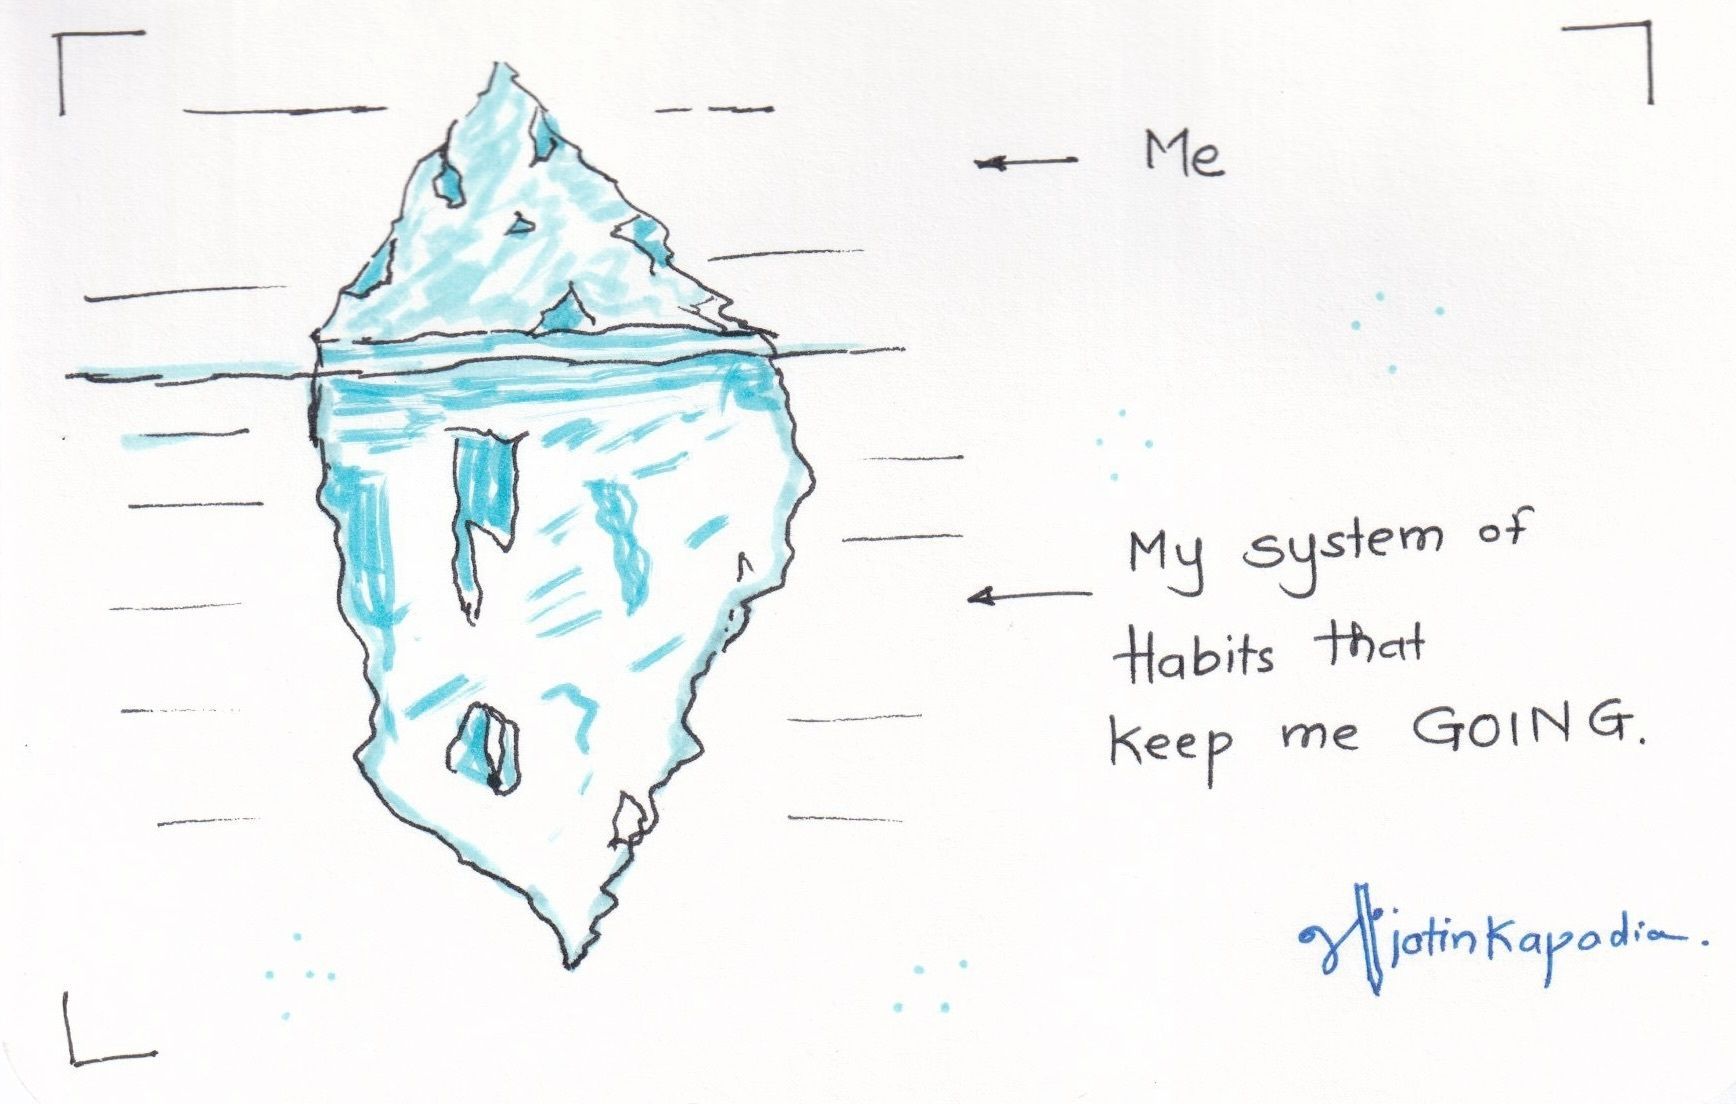 Me
My system of
Habits that
keep me GOING.
jatinkapadia.